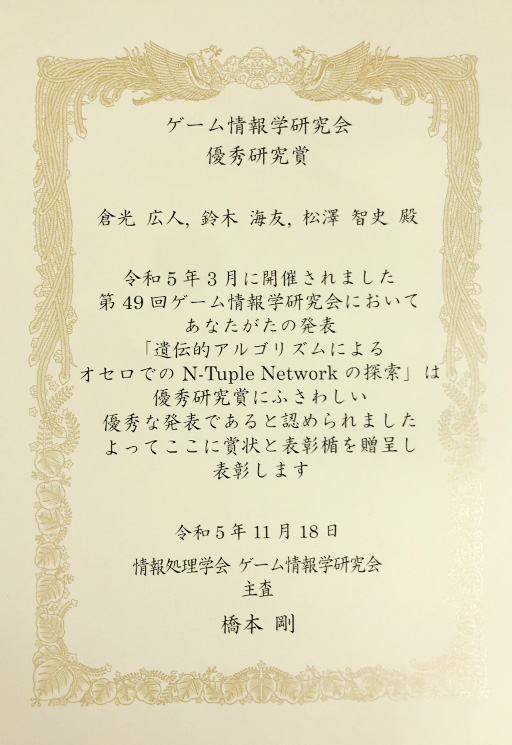 ゲーム情報学研究会
優秀研究賞
倉光 広人, 鈴木 海友, 松澤 智史 殿
令和5年3月に開催されました
第49回ゲーム情報学研究会において
あなたがたの発表
「遺伝的アルゴリズムによる
オセロでの N-Tuple Network の探索」は
優秀研究賞にふさわしい
優秀な発表であると認められました
よってここに賞状と表彰楯を贈呈し
表彰します
令和5年11月18日
情報処理学会 ゲーム情報学研究会
主査
橋本 剛